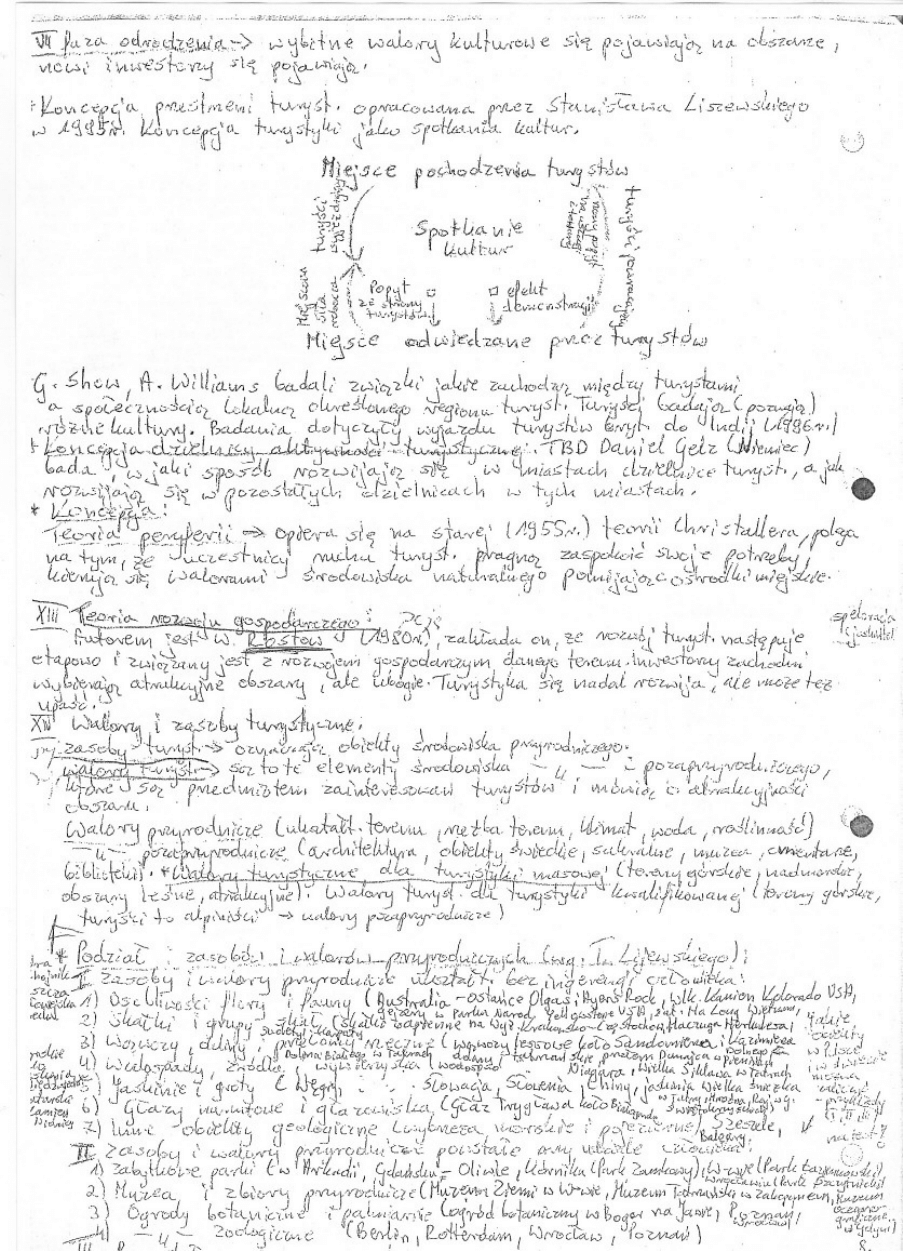 VII faza odrodzenia -> wybitne walory kulturowe się pojawiają na obszarze,
nowi inwestorzy się pojawiają.
* Koncepcja przestrzeni turyst. opracowana przez Stanisława Liszewskiego
w 1995r. Koncepcja turystyki jako spotkania kultur.
Miejsce pochodzenia turystów
turyści
odwiedzający
Spotkanie
kultur
nowy popyt
turyści powracający
Miejscowa
siła
robocza
Popyt
ze strony
turystów
efekt
demonstracji
Miejsce odwiedzane przez turystów
G. Show, A. Williams badali związki jakie zachodzą między turystami
a społecznością lokalną określonego regionu turyst. Turyści badają (poznają)
różne kultury. Badania dotyczyły wyjazdu turystów bryt. do Indii (1996r.)
* Koncepcja dzielnicy aktywności turystycznej. TBD Daniel Getz (Niemiec)
bada, w jaki sposób rozwijają się w miastach dzielnice turyst., a jak
rozwijają się w pozostałych dzielnicach w tych miastach.
* Koncepcja:
Teoria peryferii -> opiera się na starej (1955r.) teorii Christallera, polega
na tym, że uczestnicy ruchu turyst. pragną zaspokoić swoje potrzeby,
kierują się walorami środowiska naturalnego pomijając ośrodki miejskie.
XIII Teoria rozwoju gospodarczego:
Autorem jest W Rostow (1980r.), zakłada on, że rozwój turyst. następuje
etapowo i związany jest z rozwojem gospodarczym danego terenu. Inwestorzy zachodni
wybierają atrakcyjne obszary, ale ubogie. Turystyka się nadal rozwija, ale może też
upaść.
XIV Walory i zasoby turystyczne:
zasoby turyst. -> oznaczają obiekty środowiska przyrodniczego.
walory turyst. -> są to te elementy środowiska -"- i pozaprzyrodniczego,
które są przedmiotem zainteresowań turystów i mówią o atrakcyjności
obszaru.
Walory przyrodnicze (ukształt. terenu, rzeźba terenu, klimat, woda, roślinność)
-"- pozaprzyrodnicze (architektura, obiekty świeckie, sakralne, muzea, cmentarze,
biblioteki). * Walory turystyczne dla turystyki masowej (tereny górskie, nadmorskie,
obszary leśne, atrakcyjne). Walory turyst. dla turystyki kwalifikowanej (tereny górskie,
turyści to alpiniści -> walory pozaprzyrodnicze)
* Podział: zasobów i walorów przyrodniczych (wg. T. Lijewskiego):
I Zasoby i walory przyrodnicze ukształt. bez ingerencji człowieka:
1) Osobliwości flory i fauny (Australia - ostańce Olgas i Ayers Rock, wlk. Kanion Kolorado USA,
gejzery w Parku Narod. Yellowstone USA, zat. Ha Long Wietnam,
2) Skałki i grupy skał (skałki wapienne na Wyż. Krakowsko-Częstochow., Maczuga Herkulesa)
3) Wąwozy, doliny i przełomy rzeczne (wąwozy lessowe koło Sandomierza i Kazimierza Dolnego
Dolina Białego w Tatrach przełom Dunajca w Pieninach
4) Wodospady, źródła, wywierzyska (wodospad Niagara, Wielka Siklawa w Tatrach
5) Jaskinie i groty (Węgry, Słowacja, Słowenia, Chiny, jaskinia Wielka Śnieżna
w Tatry
6) Głazy narzutowe i głazowiska (Głaz Trygława koło Białogardu
7) Inne obiekty geologiczne (wybrzeża morskie i Szeszele,
Baleary)
jakie
obiekty
w Polsce
i w świecie
można
zaliczyć
- przykłady
I, II, III
na test?
II Zasoby i walory przyrodnicze powstałe przy udziale człowieka:
1) Zabytkowe parki (w Arkadii, Gdańsku - Oliwie, Kórniku (Park Zamkowy), W-wie (Park Łazienkowski)
Wrocławiu (Park Szczytnicki)
2) Muzea i zbiory przyrodnicze (Muzeum Ziemi w W-wie, Muzeum Tatrzańskie w Zakopanem, Muzeum
Oceanograficzne
w Gdyni)
3) Ogrody botaniczne i palmiarnie (ogród botaniczny w Bogor na Jawie, Poznań,
Wrocław)
4) -"- zoologiczne (Berlin, Rotterdam, Wrocław, Poznań)
III
8.